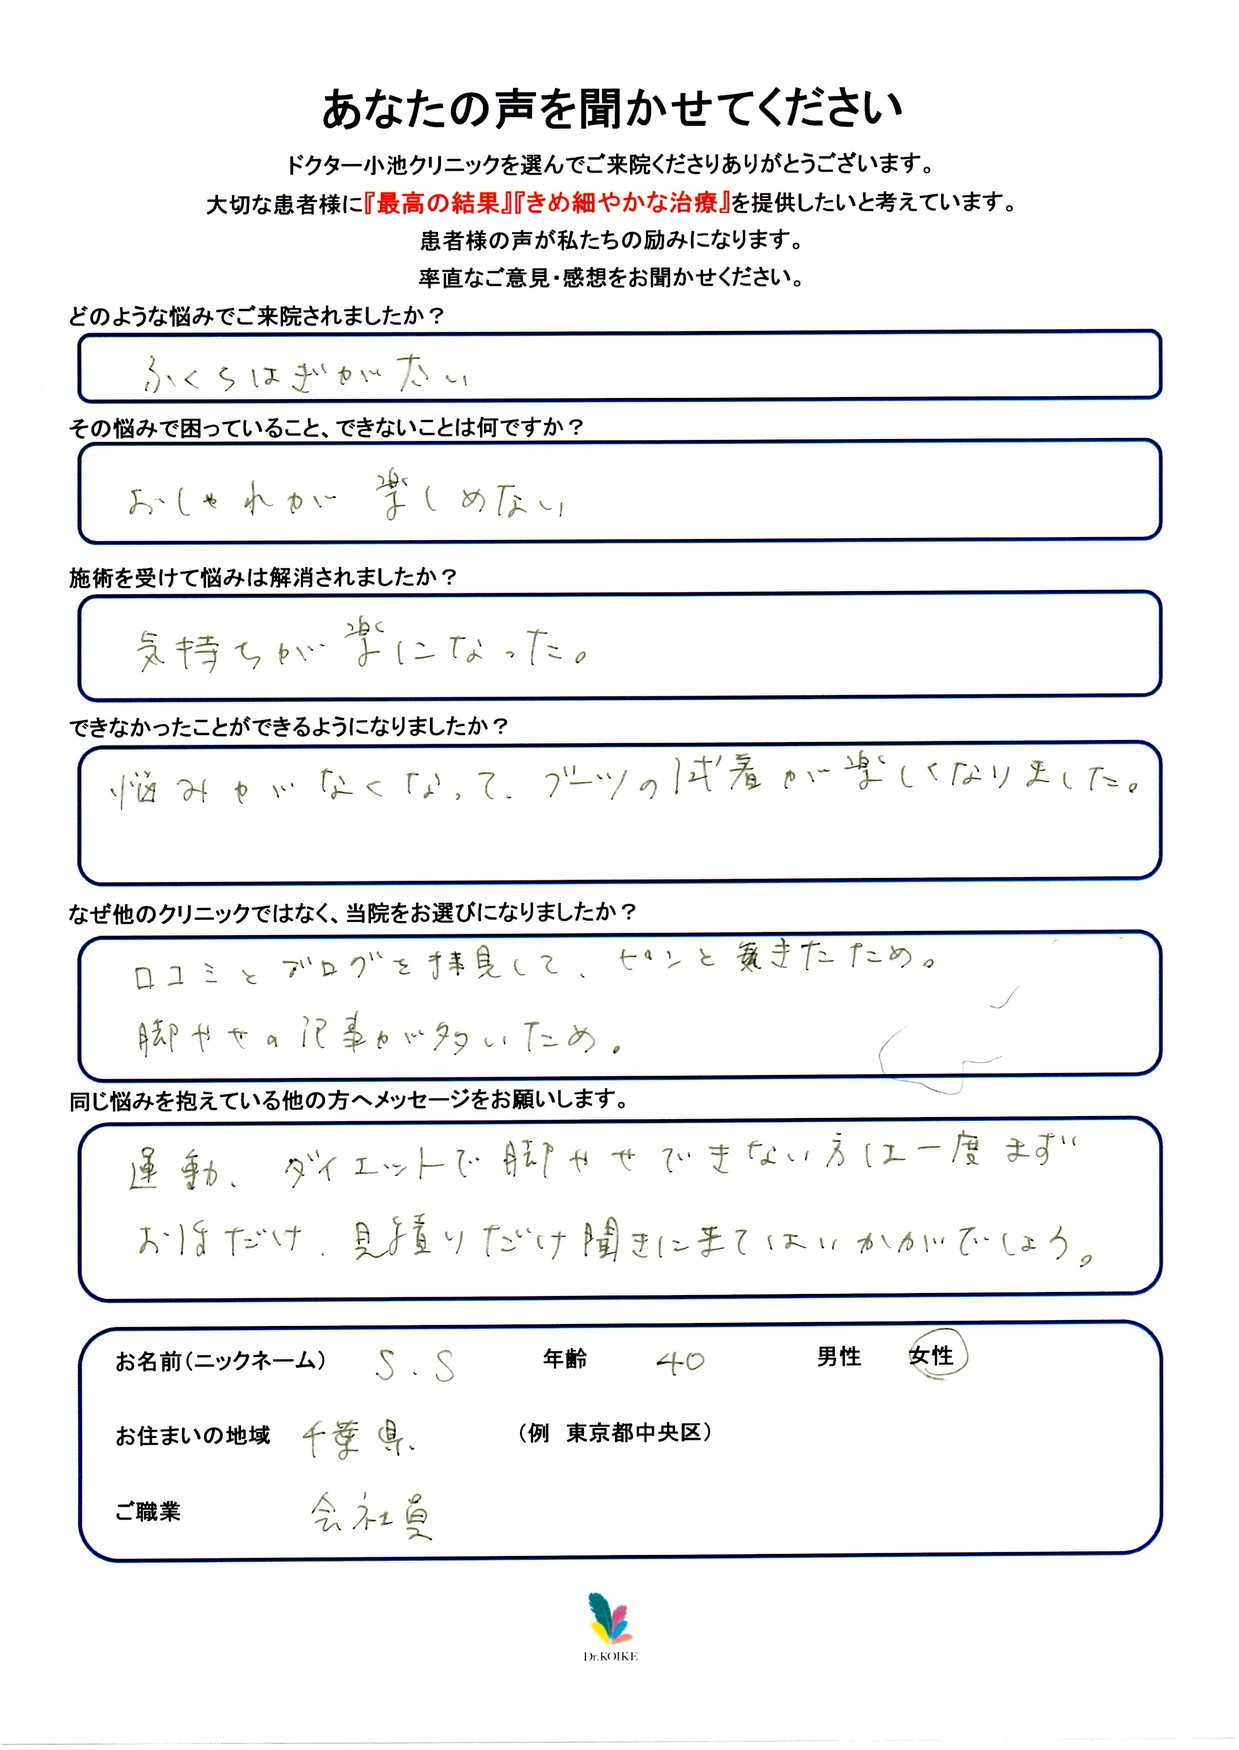 あなたの声を聞かせてください
ドクター小池クリニックを選んでご来院くださりありがとうございます。
大切な患者様に『最高の結果』『きめ細やかな治療』を提供したいと考えています。
患者様の声が私たちの励みになります。
率直なご意見・感想をお聞かせください。
どのような悩みでご来院されましたか？
ふくらはぎが太い
その悩みで困っていること、できないことは何ですか？
おしゃれが楽しめない
施術を受けて悩みは解消されましたか？
気持ちが楽になった。
できなかったことができるようになりましたか？
悩みがなくなって、ブーツの試着が楽しくなりました。
なぜ他のクリニックではなく、当院をお選びになりましたか？
口コミとブログを拝見して、ピンときたため。
脚やせの記事が多いため。
同じ悩みを抱えている他の方へメッセージをお願いします。
運動、ダイエットで脚やせできない方は一度まず
お話だけ、見積りだけ聞きに来てはいかがでしょう。
お名前（ニックネーム） S.S 年齢 40 男性 女性
お住まいの地域 千葉県 （例 東京都中央区）
ご職業 会社員
Dr.KOIKE